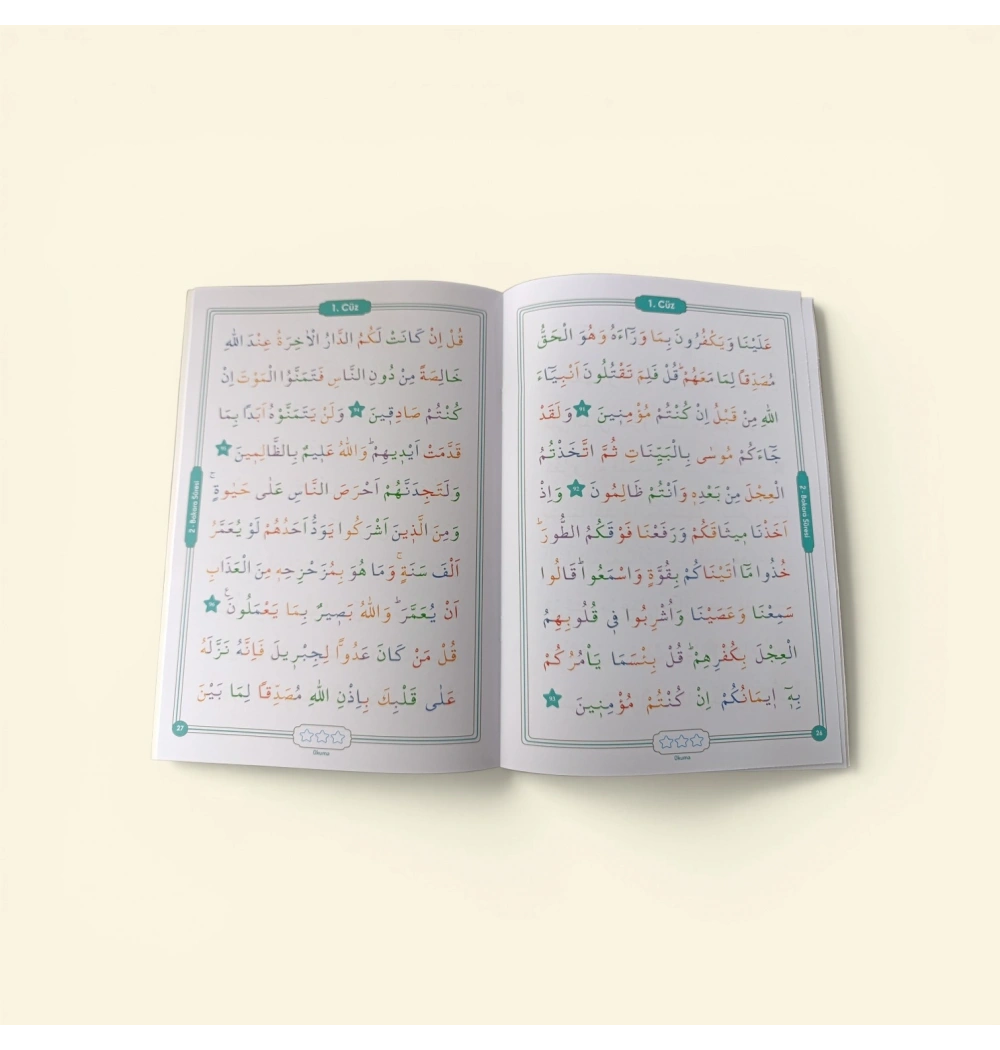 1. Cüz
عَلَيْنَا وَيَكْفُرُونَ بِمَا وَرَٓاءَهُ وَهُوَ الْحَقُّ
مُصَدِّقًا لِمَا مَعَهُمْۜ قُلْ فَلِمَ تَقْتُلُونَ اَنْبِيَٓاءَ
اللّٰهِ مِنْ قَبْلُ اِنْ كُنْتُمْ مُؤْمِنٖينَ 91 وَلَقَدْ
جَٓاءَكُمْ مُوسٰى بِالْبَيِّنَاتِ ثُمَّ اتَّخَذْتُمُ
الْعِجْلَ مِنْ بَعْدِهٖ وَاَنْتُمْ ظَالِمُونَ 92 وَاِذْ
اَخَذْنَا مٖيثَاقَكُمْ وَرَفَعْنَا فَوْقَكُمُ الطُّورَۜ
خُذُوا مَٓا اٰتَيْنَاكُمْ بِقُوَّةٍ وَاسْمَعُواۜ قَالُوا
سَمِعْنَا وَعَصَيْنَا وَاُشْرِبُوا فٖى قُلُوبِهِمُ
الْعِجْلَ بِكُفْرِهِمْۜ قُلْ بِئْسَمَا يَاْمُرُكُمْ
بِهٖٓ اٖيمَانُكُمْ اِنْ كُنْتُمْ مُؤْمِنٖينَ 93
2 - Bakara Sûresi
Okuma
26
1. Cüz
قُلْ اِنْ كَانَتْ لَكُمُ الدَّارُ الْاٰخِرَةُ عِنْدَ اللّٰهِ
خَالِصَةً مِنْ دُونِ النَّاسِ فَتَمَنَّوُا الْمَوْتَ اِنْ
كُنْتُمْ صَادِقٖينَ 94 وَلَنْ يَتَمَنَّوْهُ اَبَدًا بِمَا
قَدَّمَتْ اَيْدٖيهِمْۜ وَاللّٰهُ عَلٖيمٌ بِالظَّالِمٖينَ 95
وَلَتَجِدَنَّهُمْ اَحْرَصَ النَّاسِ عَلٰى حَيٰوةٍۚ
وَمِنَ الَّذٖينَ اَشْرَكُوا يَوَدُّ اَحَدُهُمْ لَوْ يُعَمَّرُ
اَلْفَ سَنَةٍۚ وَمَا هُوَ بِمُزَحْزِحِهٖ مِنَ الْعَذَابِ
اَنْ يُعَمَّرَۜ وَاللّٰهُ بَصٖيرٌ بِمَا يَعْمَلُونَۚ 96
قُلْ مَنْ كَانَ عَدُوًّا لِجِبْرٖيلَ فَاِنَّهُ نَزَّلَهُ
عَلٰى قَلْبِكَ بِاِذْنِ اللّٰهِ مُصَدِّقًا لِمَا بَيْنَ
2 - Bakara Sûresi
Okuma
27